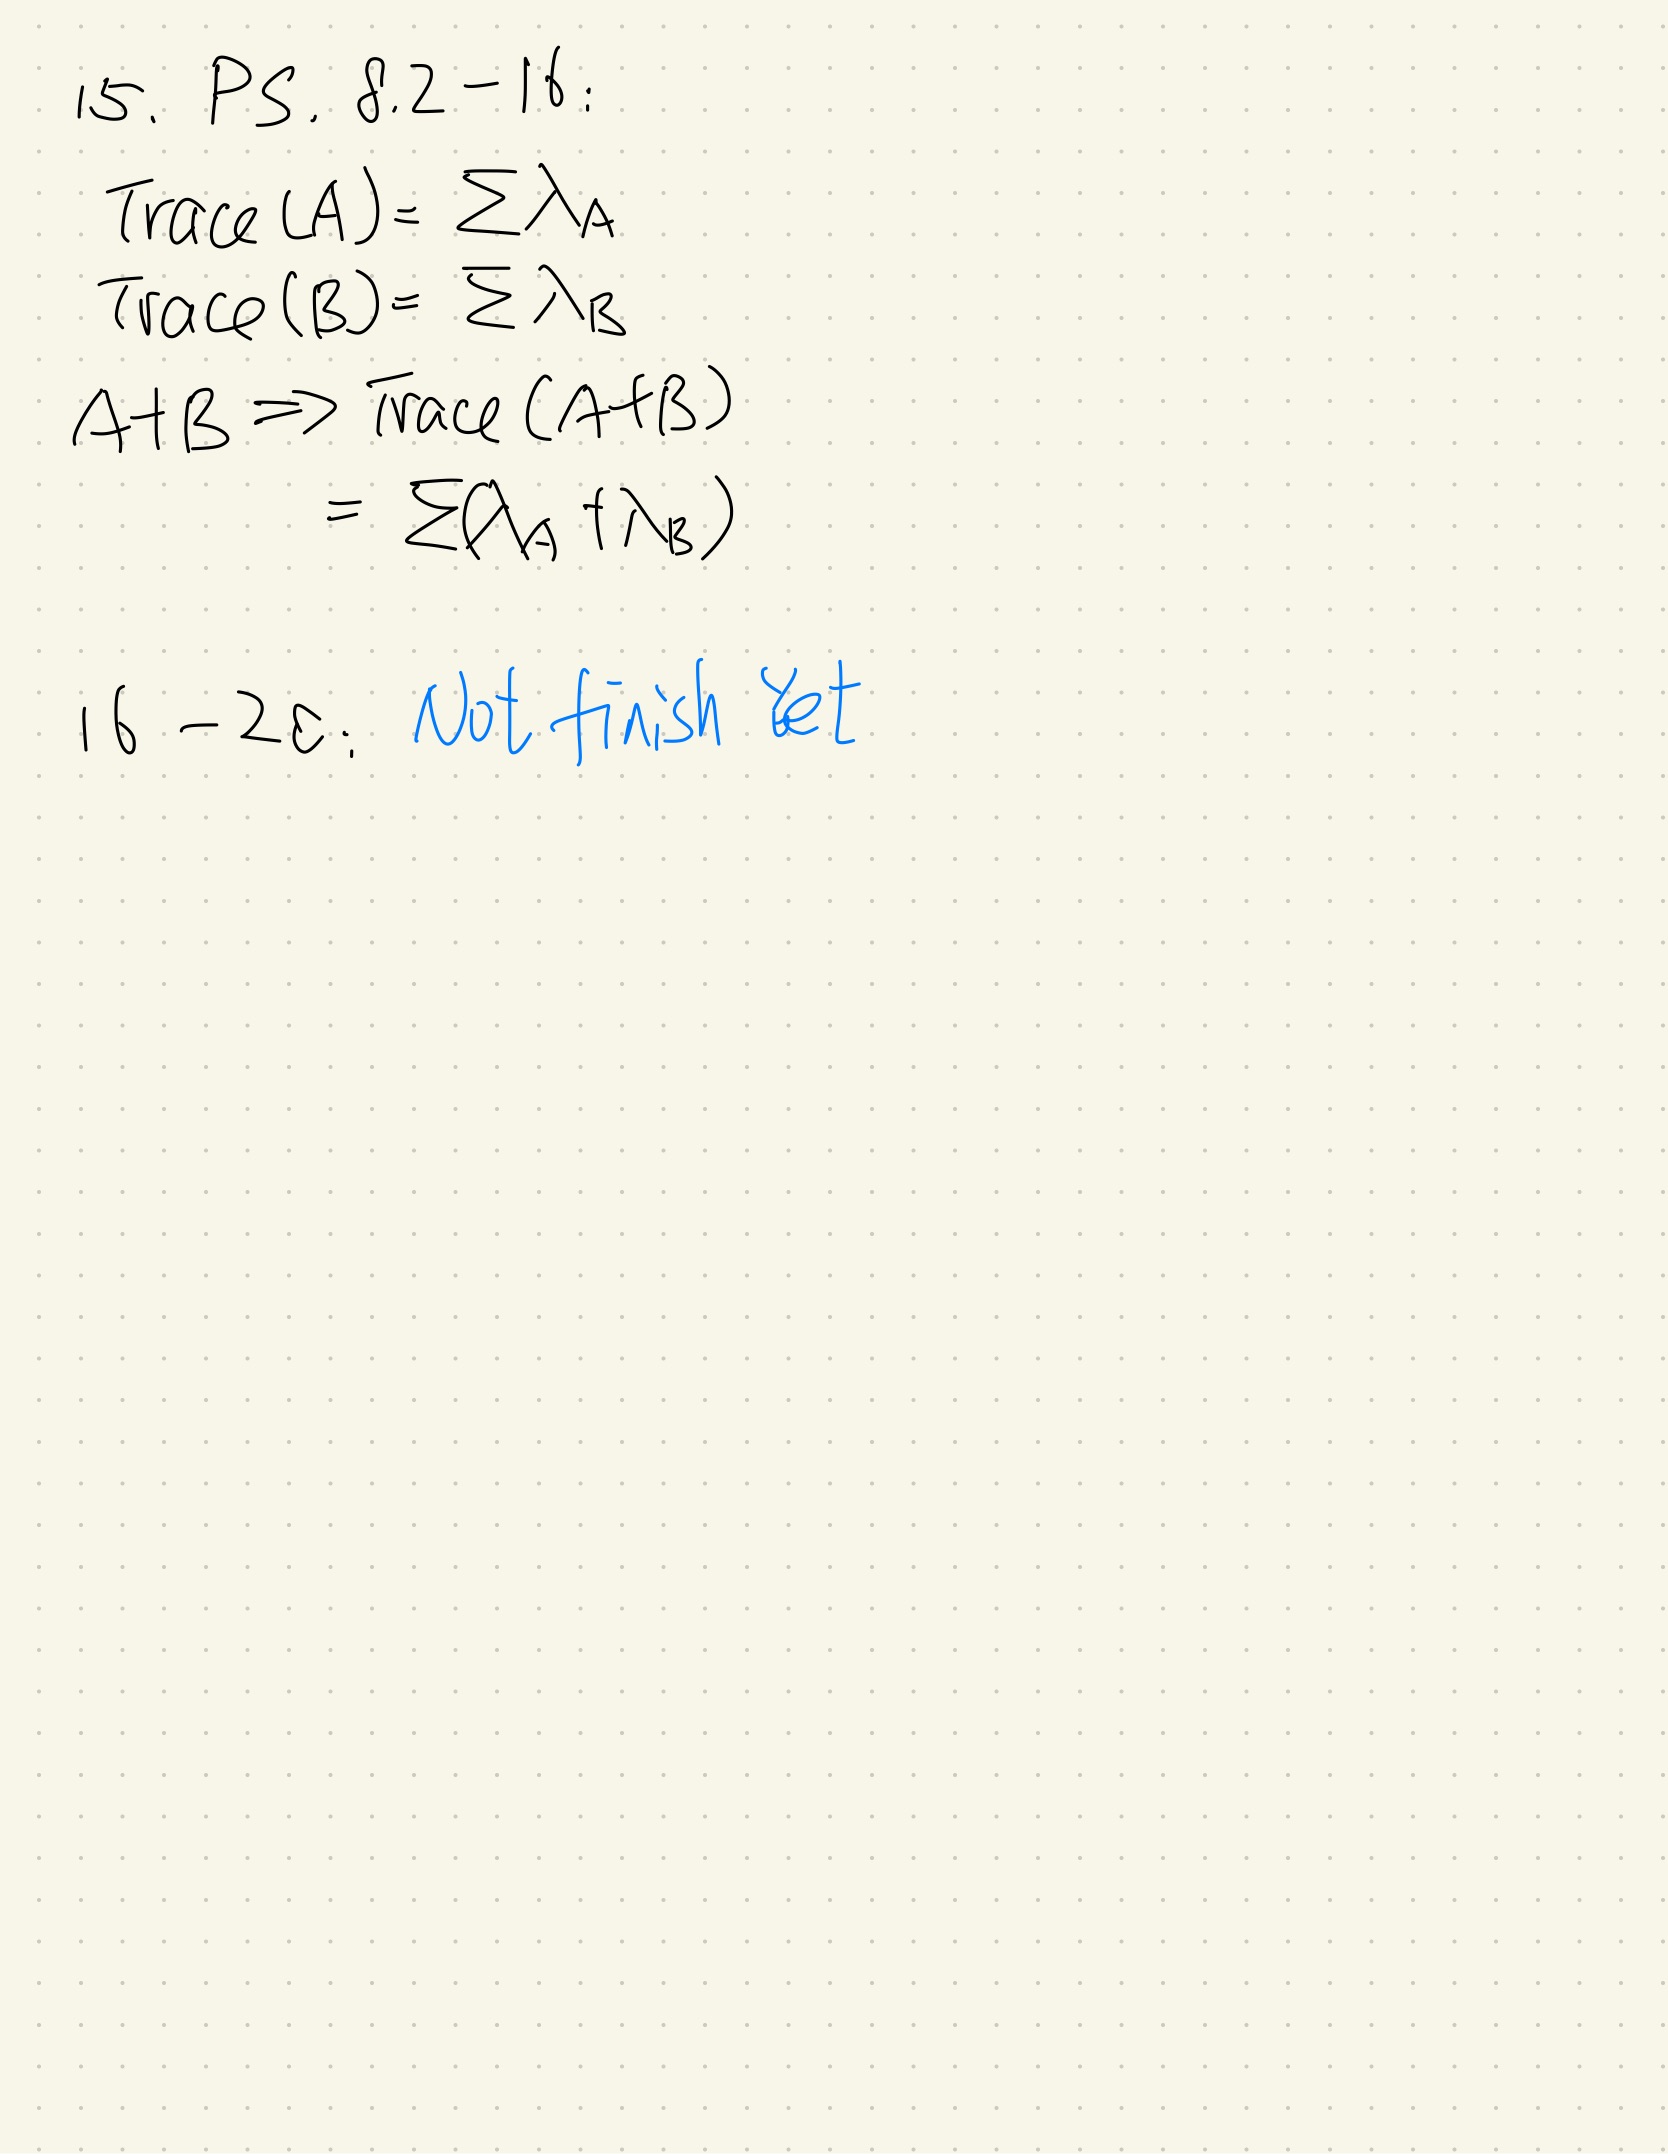 15. PS. 8.2-16:
Trace(A)= ΣλA
Trace(B)= ΣλB
A+B ⇒ Trace(A+B)
= Σ(λA+λB)
16-20: Not finish Yet